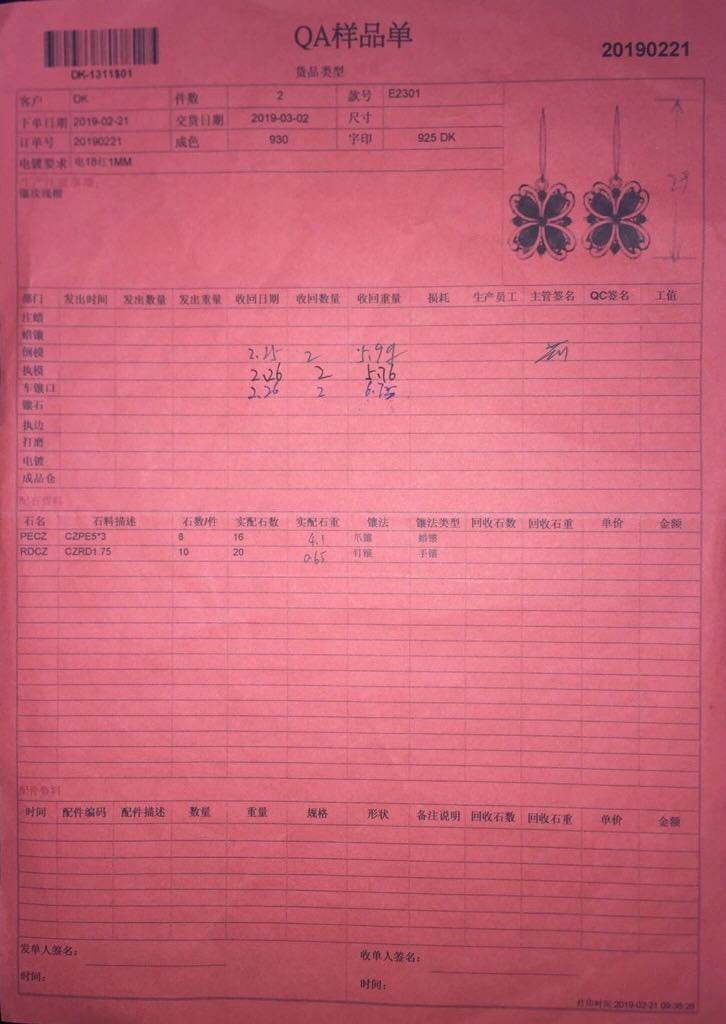 QA样品单
20190221
DK-1311$01
货品类型
客户 DK 件数 2 款号 E2301
下单日期 2019-02-21 交货日期 2019-03-02 尺寸
订单号 20190221 成色 930 字印 925 DK
电镀要求 电18红1MM
29
部门 发出时间 发出数量 发出重量 收回日期 收回数量 收回重量 损耗 生产员工 主管签名 QC签名 工值
注蜡
蜡镶
倒模 2.25 2 5.99
执模 2.26 2 5.76
车镶口 2.26 2
镶石
执边
打磨
电镀
成品仓
配石资料
石名 石料描述 石数/件 实配石数 实配石重 镶法 镶法类型 回收石数 回收石重 单价 金额
PECZ CZPE5*3 8 16 4.1 爪镶 蜡镶
RDCZ CZRD1.75 10 20 0.65 钉镶 手镶
配件资料
时间 配件编码 配件描述 数量 重量 规格 形状 备注说明 回收石数 回收石重 单价 金额
发单人签名: 收单人签名:
时间: 时间:
打印时间:2019-02-21 09:36:28